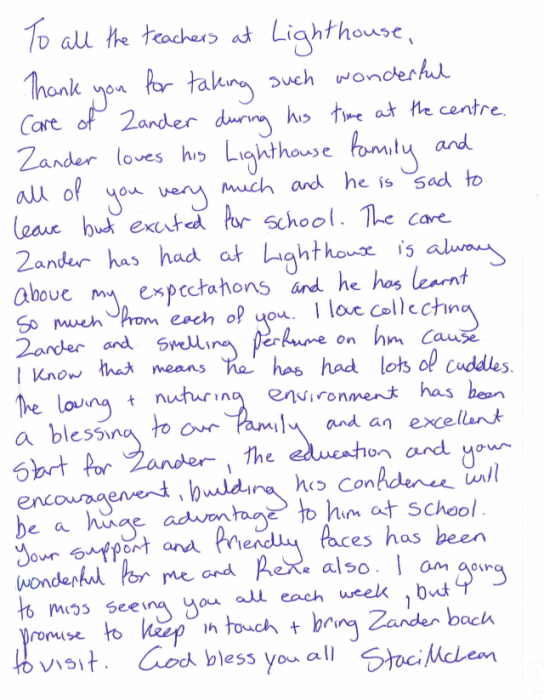 To all the teachers at Lighthouse,
Thank you for taking such wonderful
Care of Zander during his time at the centre.
Zander loves his Lighthouse family and
all of you very much and he is sad to
leave but excited for school. The care
Zander has had at Lighthouse is always
above my expectations and he has learnt
so much from each of you. I love collecting
Zander and smelling perfume on him cause
I know that means he has had lots of cuddles.
The loving + nuturing environment has been
a blessing to our family and an excellent
start for Zander, the education and your
encouragement, building his confidence will
be a huge advantage to him at school.
Your support and friendly faces has been
wonderful for me and Rene also. I am going
to miss seeing you all each week, but I
promise to keep in touch + bring Zander back
to visit. God bless you all Staci McLean